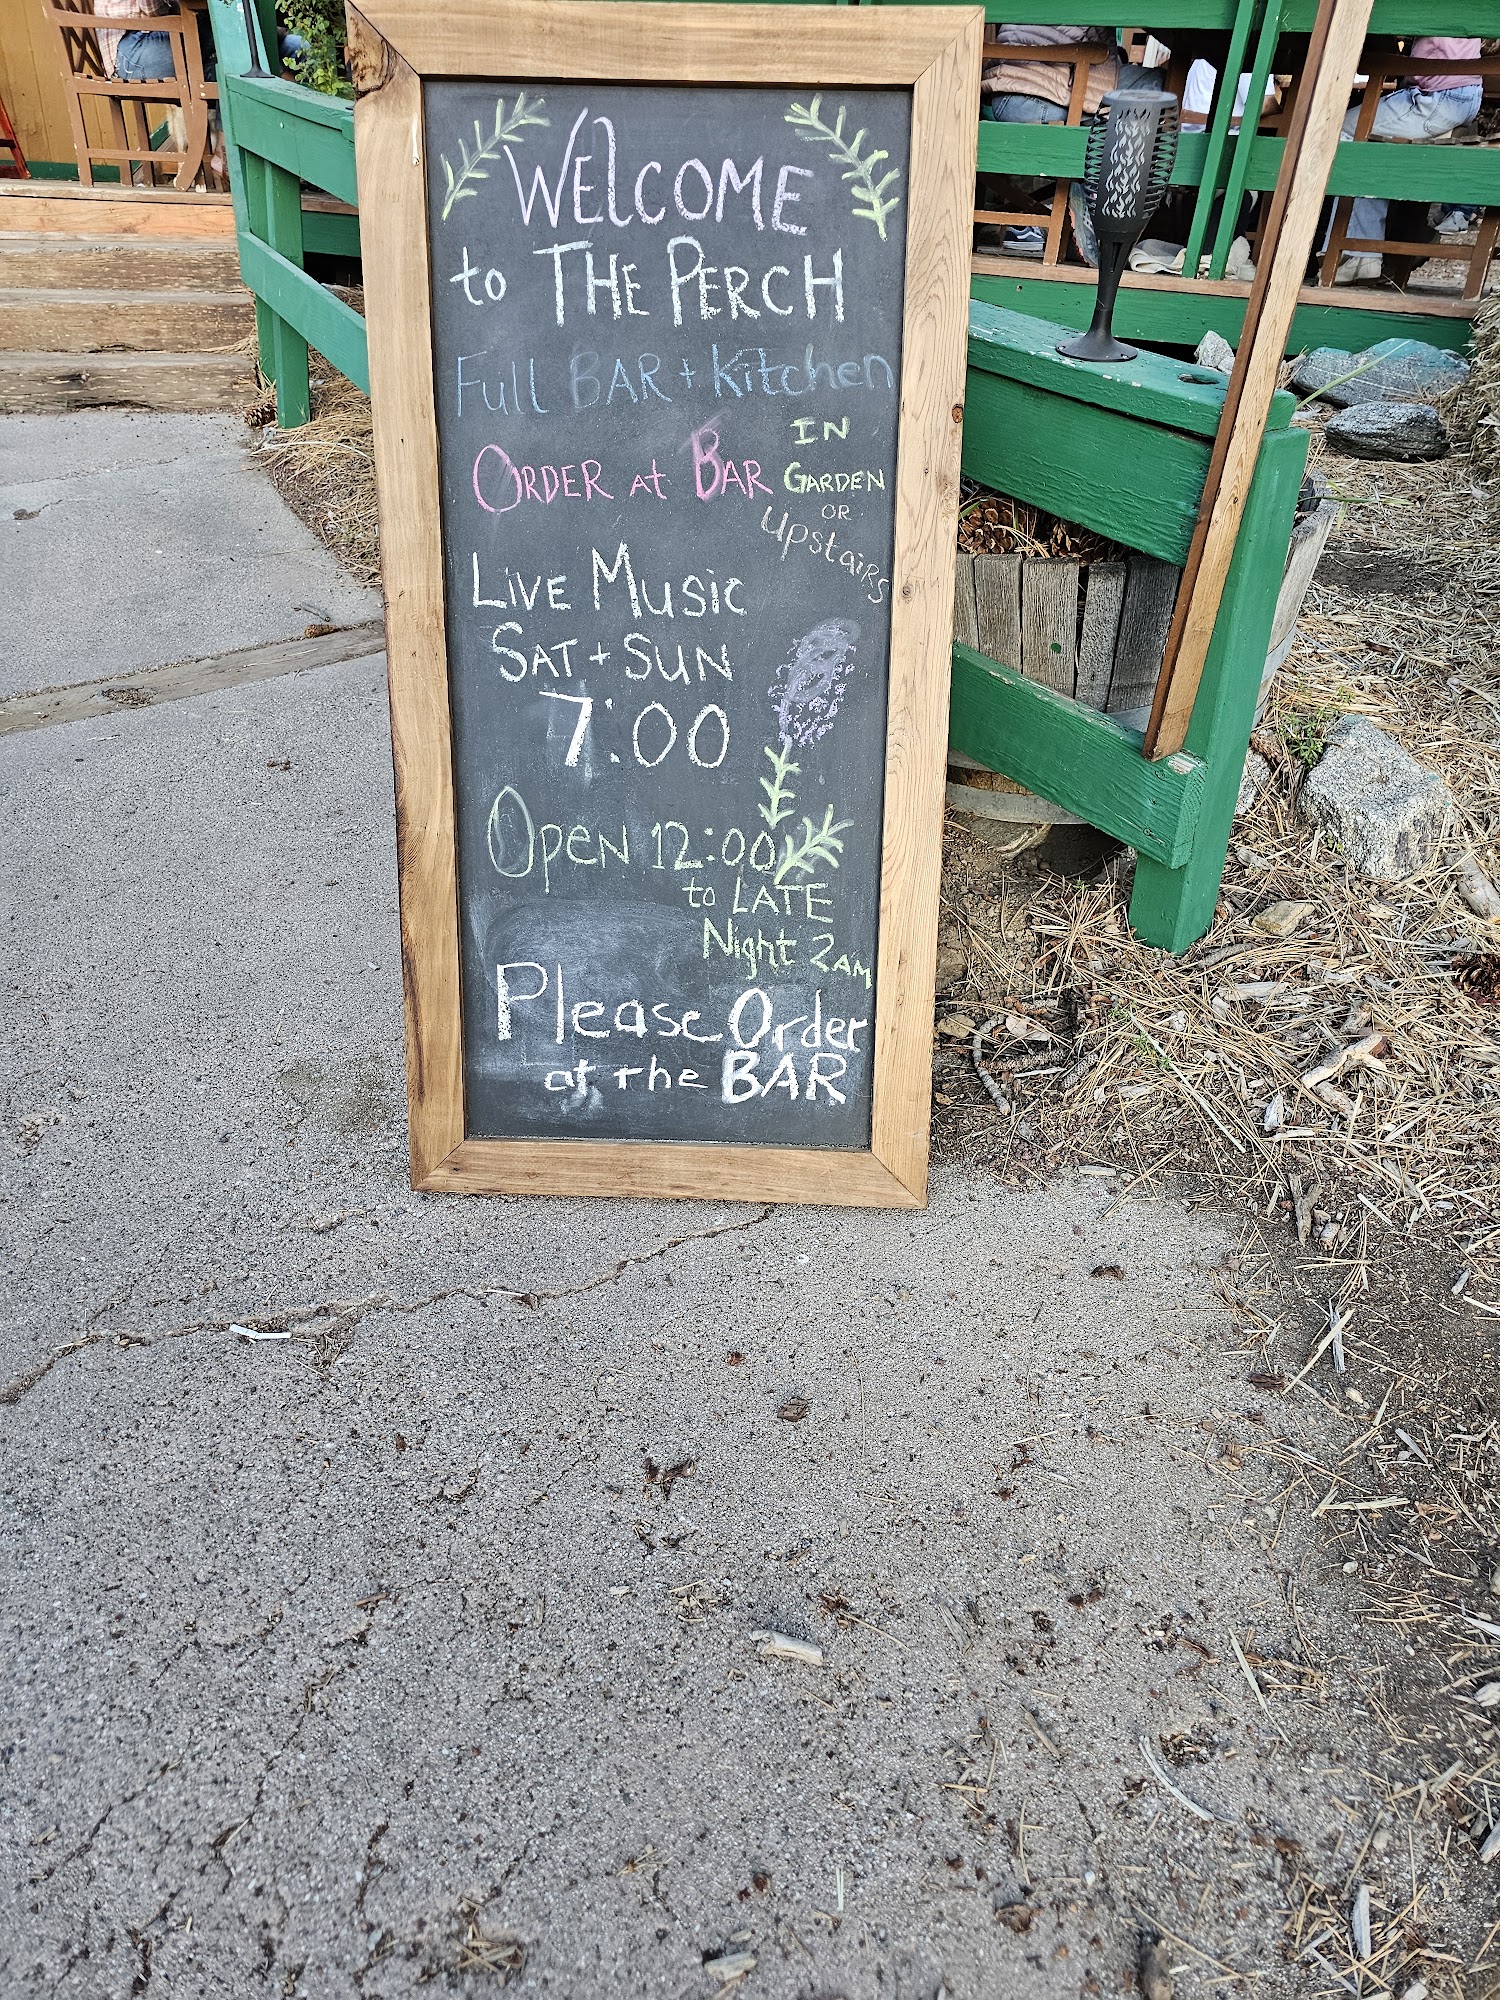 WElCOME
to THE PERCH
Full BAR + Kitchen
ORDER at BAR IN
GARDEN
OR
upstairs
LIVE MUSIC
SAT + SUN
7:00
OPEN 12:00
to LATE
Night 2AM
Please Order
at the BAR